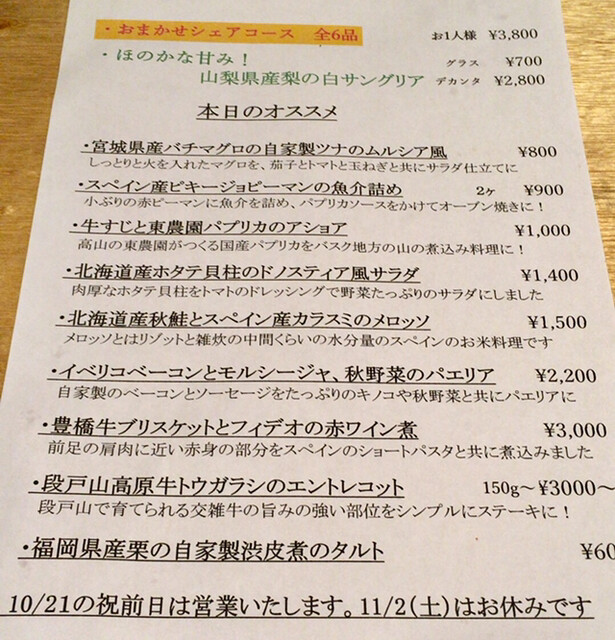 ・おまかせシェアコース 全6品 お1人様 ¥3,800
・ほのかな甘み！ グラス ¥700
山梨県産梨の白サングリア デカンタ ¥2,800
本日のオススメ
・宮城県産バチマグロの自家製ツナのムルシア風 ¥800
しっとりと火を入れたマグロを、茄子とトマトと玉ねぎと共にサラダ仕立てに
・スペイン産ピキージョピーマンの魚介詰め 2ヶ ¥900
小ぶりの赤ピーマンに魚介を詰め、パプリカソースをかけてオーブン焼きに！
・牛すじと東農園パプリカのアショア ¥1,000
高山の東農園がつくる国産パプリカをバスク地方の山の煮込み料理に！
・北海道産ホタテ貝柱のドノスティア風サラダ ¥1,400
肉厚なホタテ貝柱をトマトのドレッシングで野菜たっぷりのサラダにしました
・北海道産秋鮭とスペイン産カラスミのメロッソ ¥1,500
メロッソとはリゾットと雑炊の中間くらいの水分量のスペインのお米料理です
・イベリコベーコンとモルシージャ、秋野菜のパエリア ¥2,200
自家製のベーコンとソーセージをたっぷりのキノコや秋野菜と共にパエリアに
・豊橋牛ブリスケットとフィデオの赤ワイン煮 ¥3,000
前足の肩肉に近い赤身の部分をスペインのショートパスタと共に煮込みました
・段戸山高原牛トウガラシのエントレコット 150g～¥3000～
段戸山で育てられる交雑牛の旨みの強い部位をシンプルにステーキに！
・福岡県産栗の自家製渋皮煮のタルト ¥60
10/21の祝前日は営業いたします。11/2(土)はお休みです